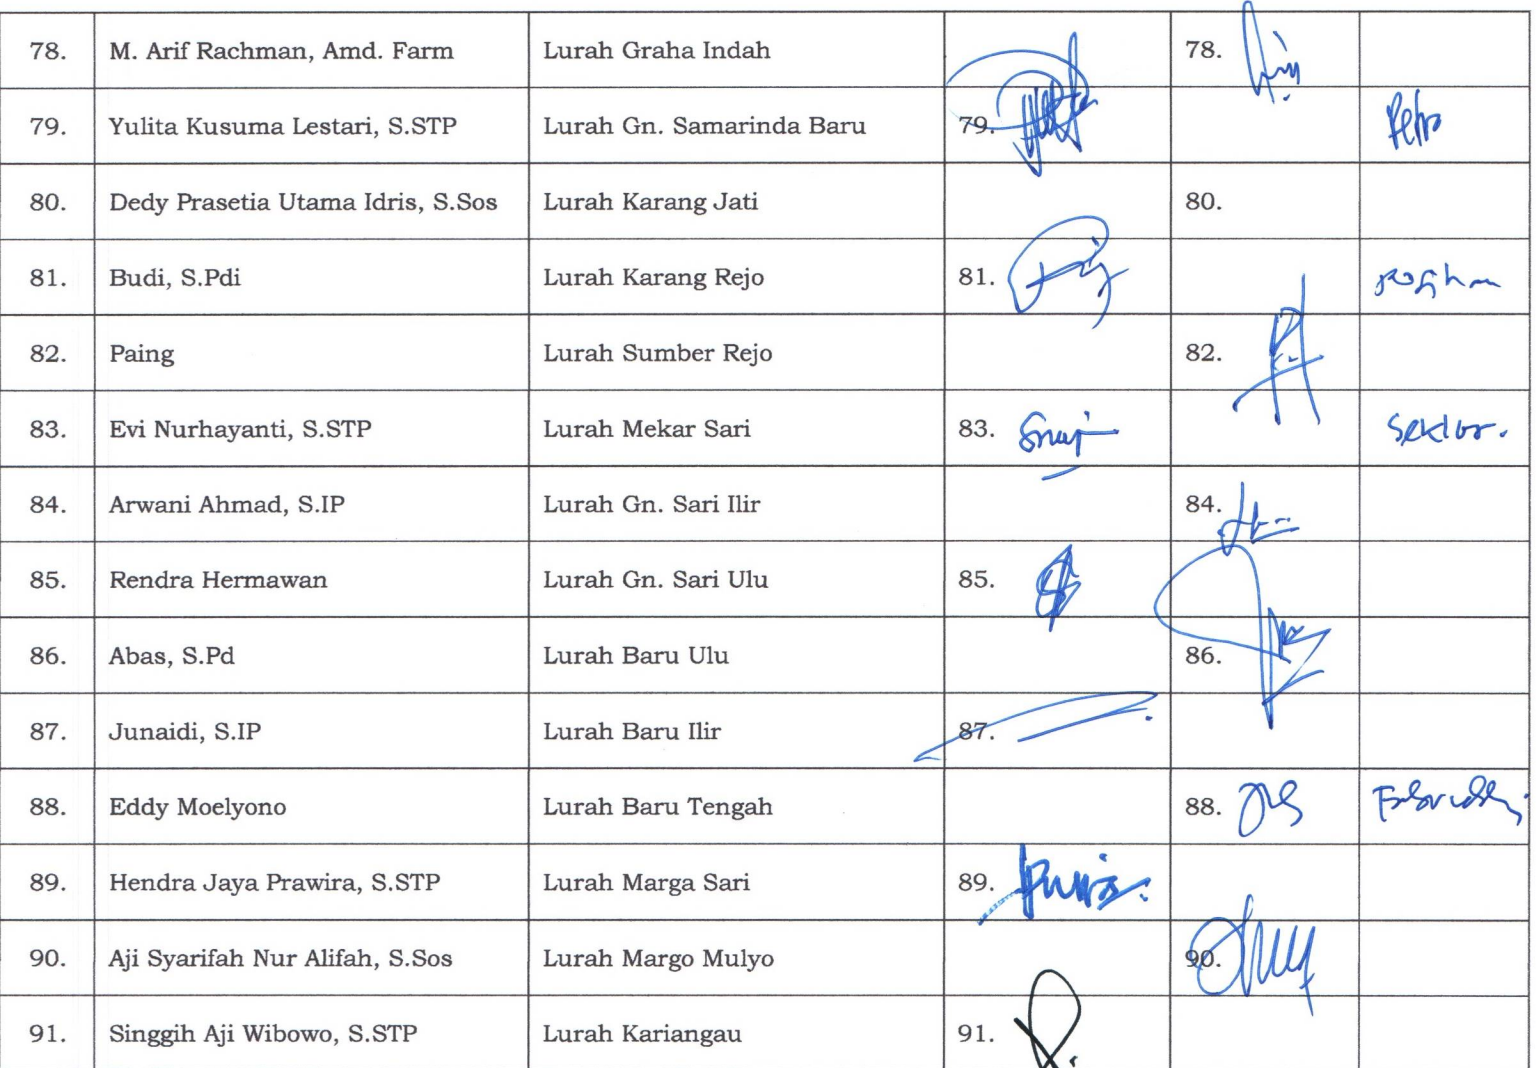 78. M. Arif Rachman, Amd. Farm Lurah Graha Indah 78.
79. Yulita Kusuma Lestari, S.STP Lurah Gn. Samarinda Baru 79.
80. Dedy Prasetia Utama Idris, S.Sos Lurah Karang Jati 80.
81. Budi, S.Pdi Lurah Karang Rejo 81.
82. Paing Lurah Sumber Rejo 82.
83. Evi Nurhayanti, S.STP Lurah Mekar Sari 83.
84. Arwani Ahmad, S.IP Lurah Gn. Sari Ilir 84.
85. Rendra Hermawan Lurah Gn. Sari Ulu 85.
86. Abas, S.Pd Lurah Baru Ulu 86.
87. Junaidi, S.IP Lurah Baru Ilir 87.
88. Eddy Moelyono Lurah Baru Tengah 88.
89. Hendra Jaya Prawira, S.STP Lurah Marga Sari 89.
90. Aji Syarifah Nur Alifah, S.Sos Lurah Margo Mulyo 90.
91. Singgih Aji Wibowo, S.STP Lurah Kariangau 91.